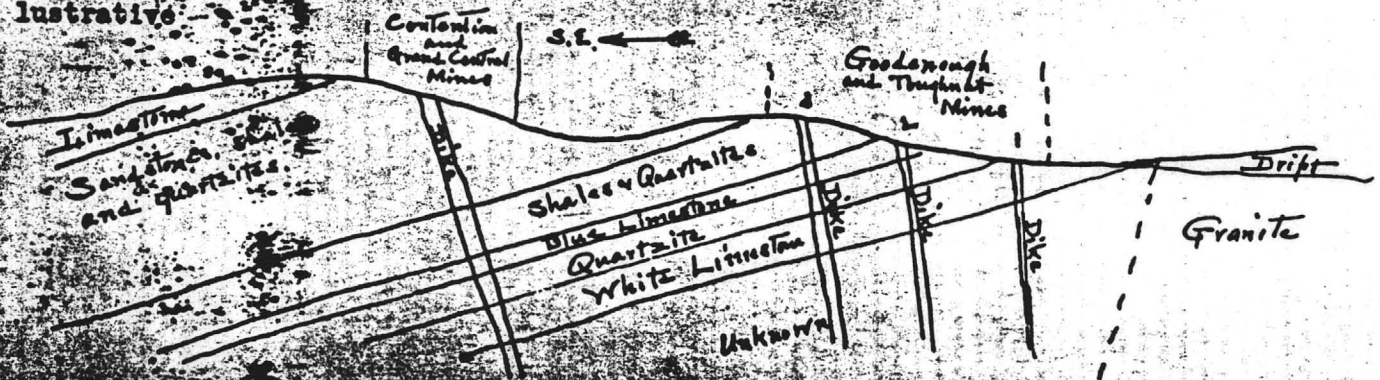 lustrative
Contention
and
Grand Central
Mines
S.E.
Goodenough
and Toughnut
Mines
3
2
1
Limestone
Sandstones, shales
and quartzites.
Dike
Shales & Quartzites
Blue Limestone
Quartzite
White Limestone
Unknown
Dike
Dike
Dike
Drift
Granite